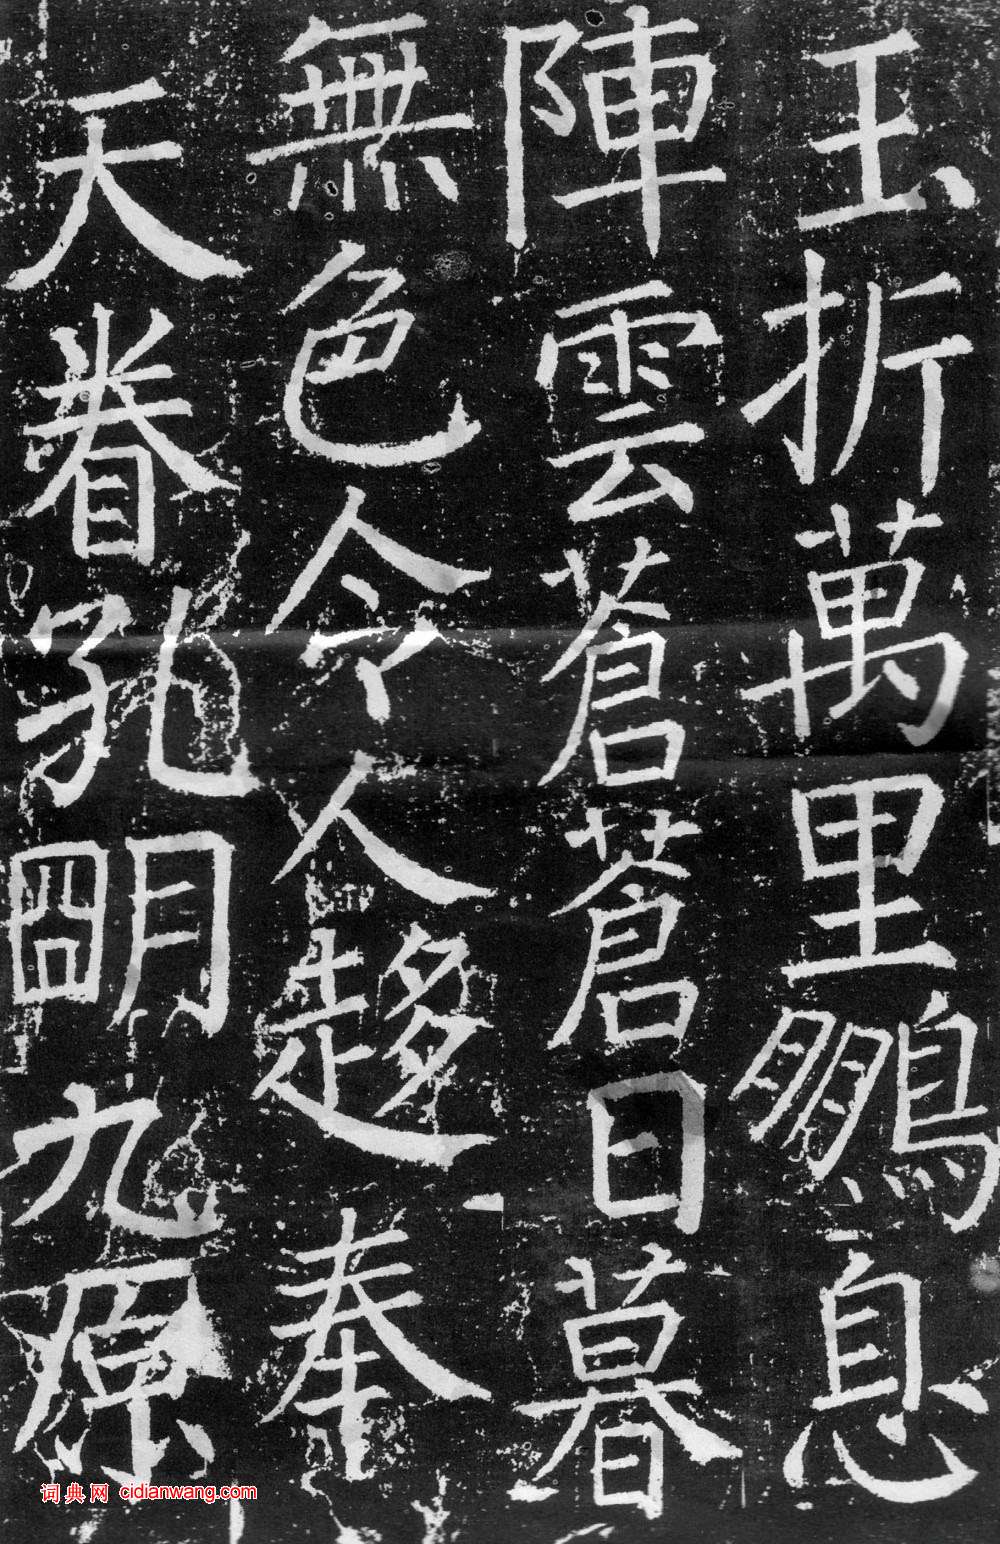 玉折萬里鵬息
陣雲蒼蒼日暮
無色令人趍奉
天眷孔朙九原
词典网 cidianwang.com